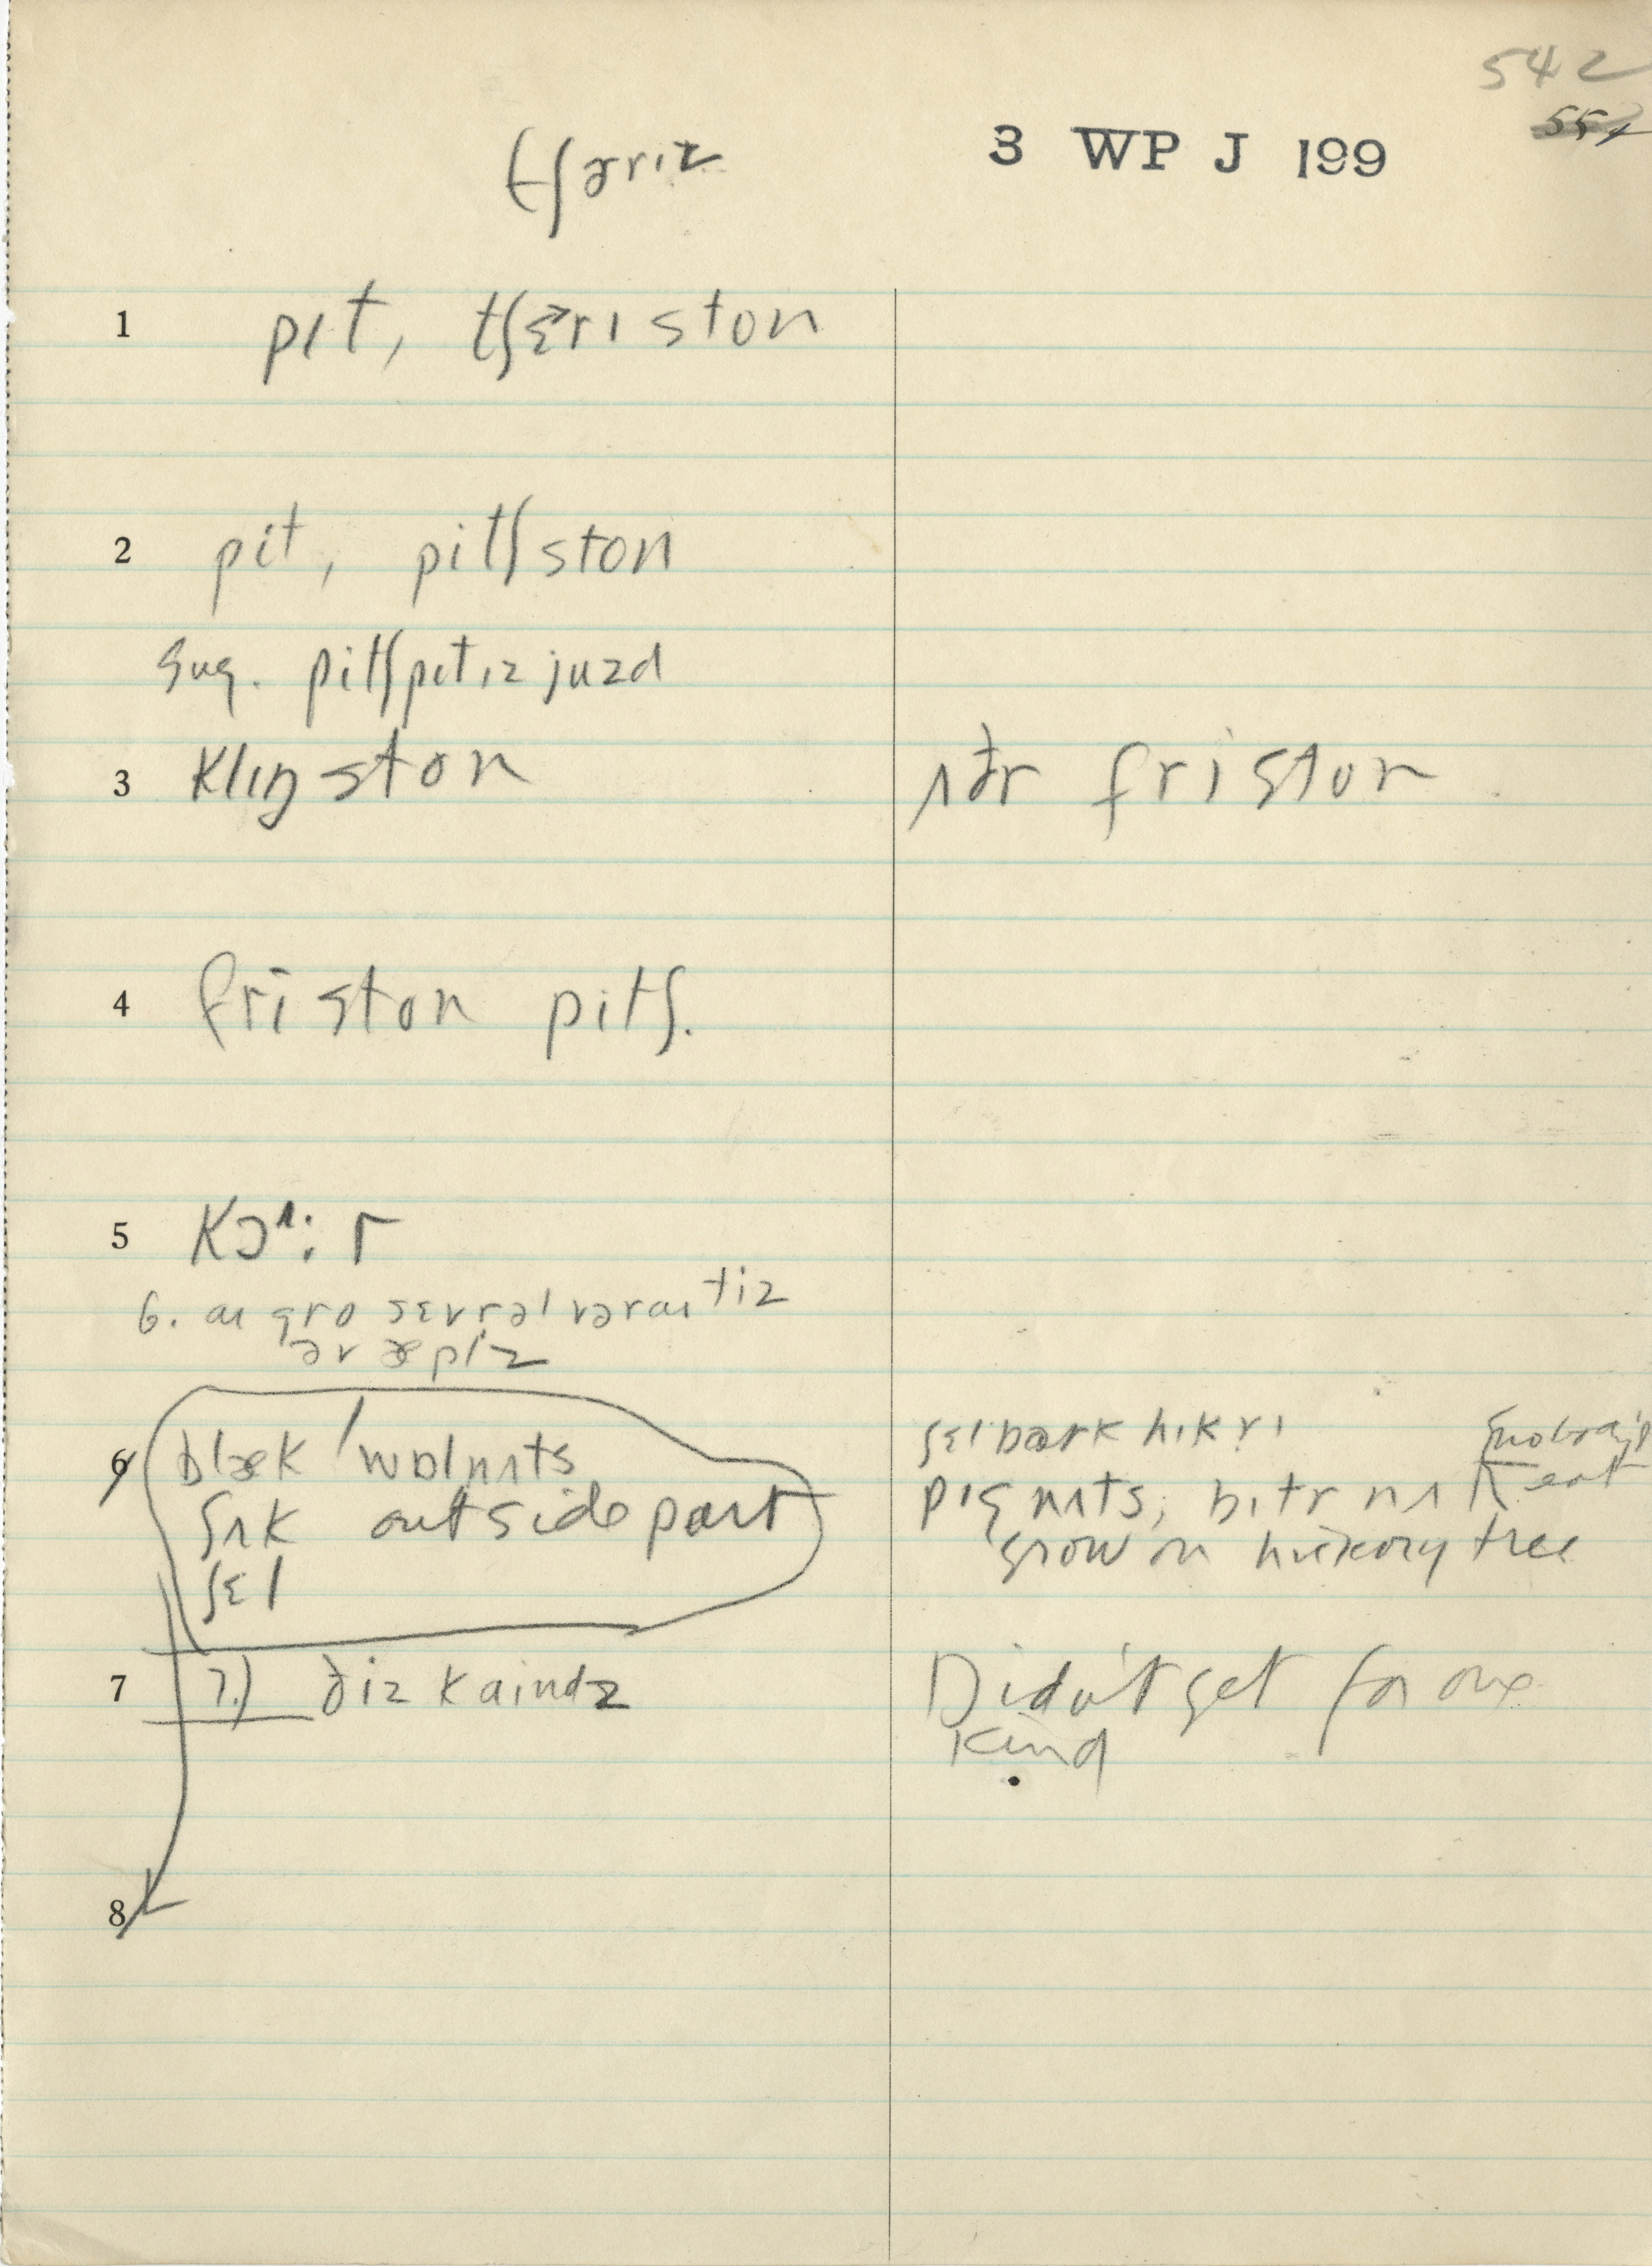 542
3 WP J 199
tʃɚriz
1 pɪt, tʃɛɚri ston
2 pit, pitʃ ston
sug. pitʃpɪt ɪz juzd
3 klɪŋ ston
ʌðr friston
4 friston pitʃ.
5 kɔʌ: r
6. aɪ gro sɛvrəl vəraɪtiz
əv æplz
6 blæk / wɒlnʌts
ʃʌk outside part
ʃɛl
ʃɛlbark hɪkri
pɪgnʌts, bɪtr nʌt eat
grow on hickory tree
7 7.) ðiz kaindz
Didn't get for one
kind
8